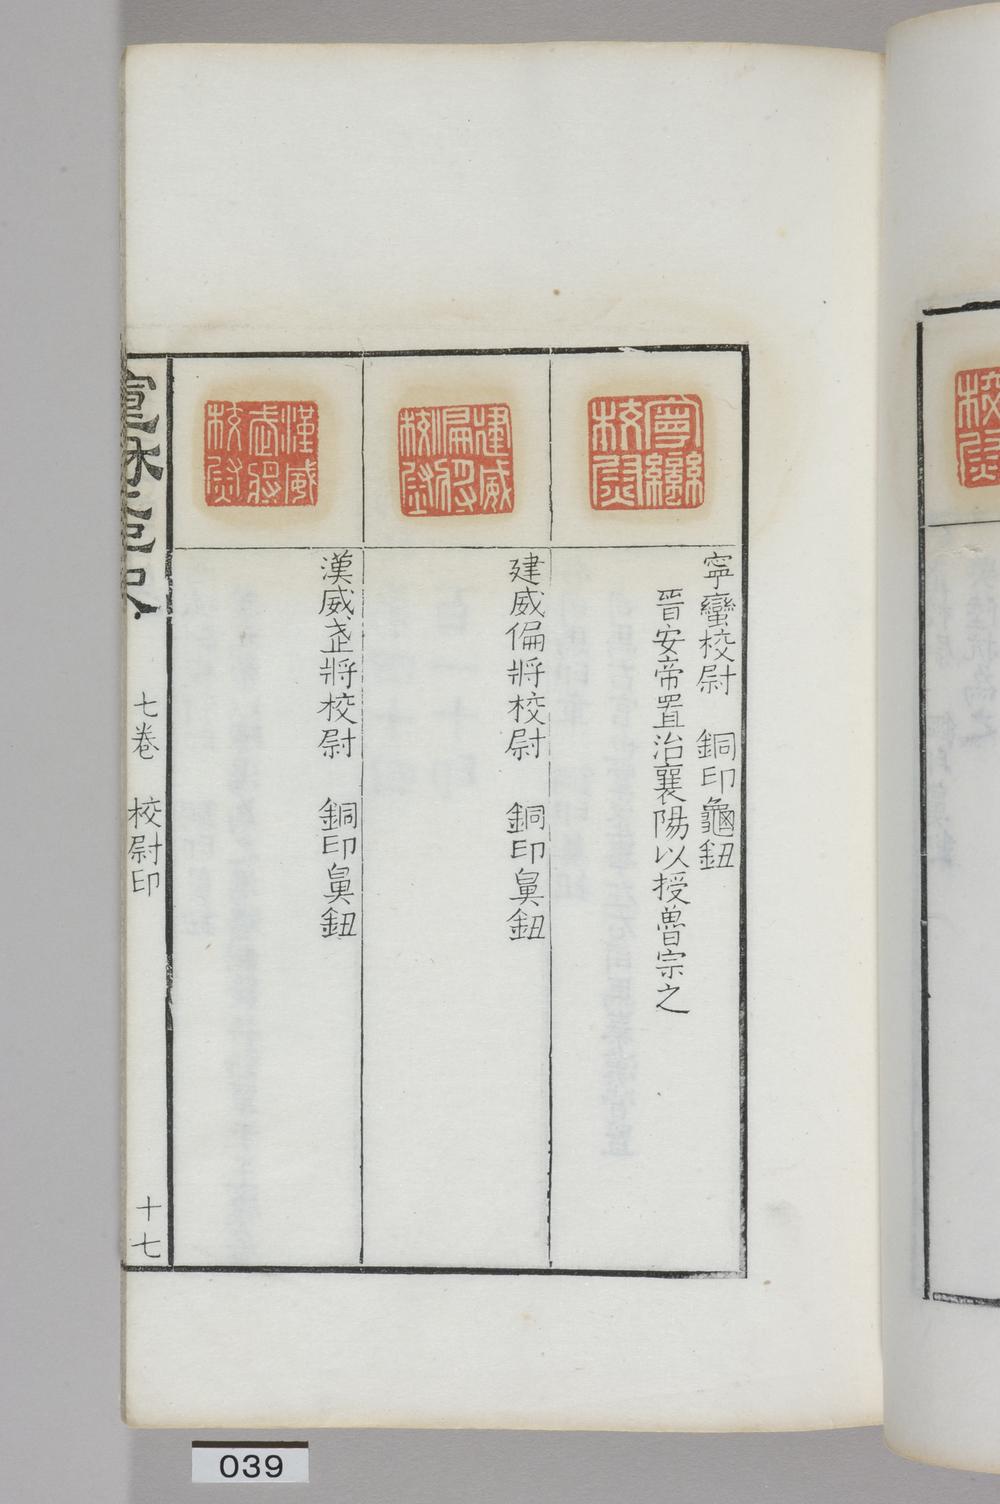 寧蠻校尉
寧蠻校尉　銅印龜鈕
晉安帝置治襄陽以授魯宗之
建威偏將校尉
建威偏將校尉　銅印鼻鈕
漢威武將校尉
漢威武將校尉　銅印鼻鈕
七卷　校尉印
十七
校尉
039